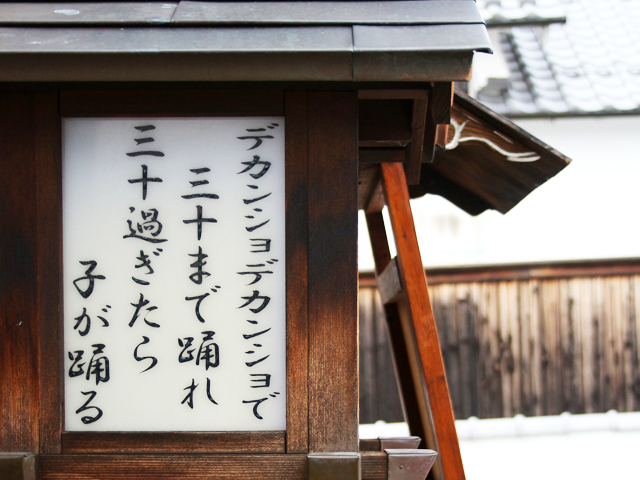 デカンショデカンショで
三十まで踊れ
三十過ぎたら
子が踊る